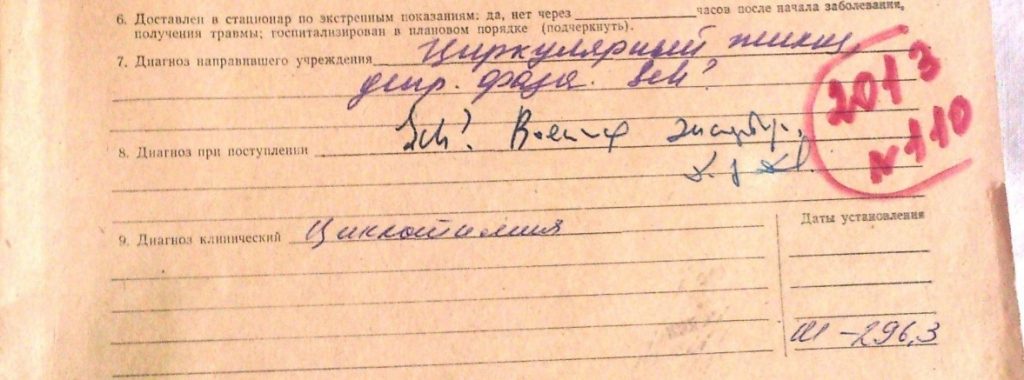 6. Доставлен в стационар по экстренным показаниям: да, нет через часов после начала заболевания,
получения травмы; госпитализирован в плановом порядке (подчеркнуть).
7. Диагноз направившего учреждения Циркулярный психоз,
депр. фаза. Sch?
2013
N 110
8. Диагноз при поступлении Sch?
9. Диагноз клинический Циклотимия
Даты установления
Ш - 296,3